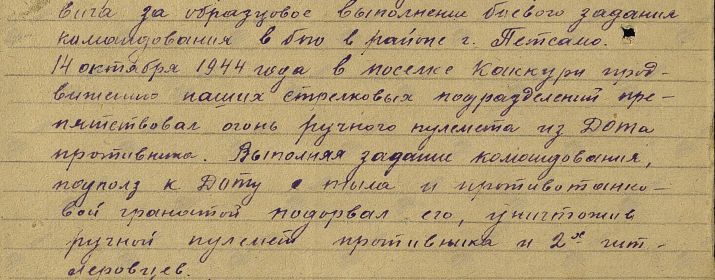 вича за образцовое выполнение боевого задания
командования в бою в районе г. Петсамо.
14 октября 1944 года в поселке Каккури прод-
вижению наших стрелковых подразделений пре-
пятствовал огонь ручного пулемета из Дота
противника. Выполняя задание командования,
подполз к Доту с тыла и противотанко-
вой гранатой подорвал его, уничтожив
ручной пулемет противника и 2х гит-
леровцев.